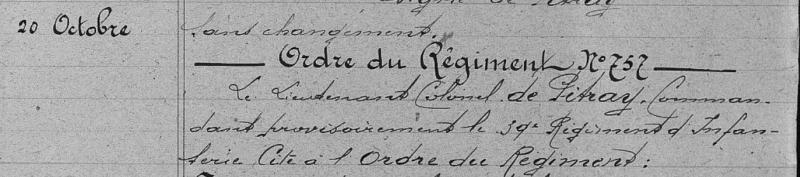 de Pitray
20 Octobre
sans changement.
Ordre du Régiment N°757
Le Lieutenant Colonel de Pitray, Comman-
dant provisoirement le 39e Régiment d'Infan-
terie Cite à l'Ordre du Régiment: